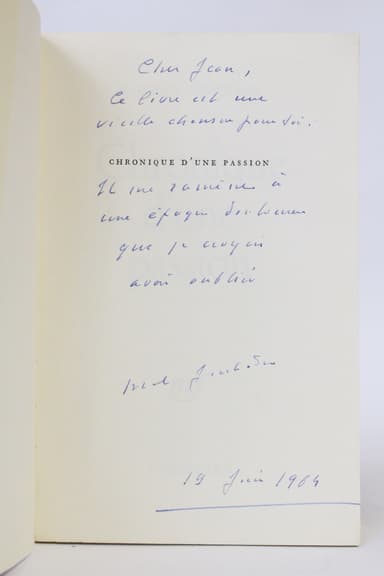 Cher Jean,
Ce livre est une
vieille chanson pour toi.
CHRONIQUE D'UNE PASSION
Il me ramène à
une époque
que je croyais
avoir oublié
19 Juin 1964